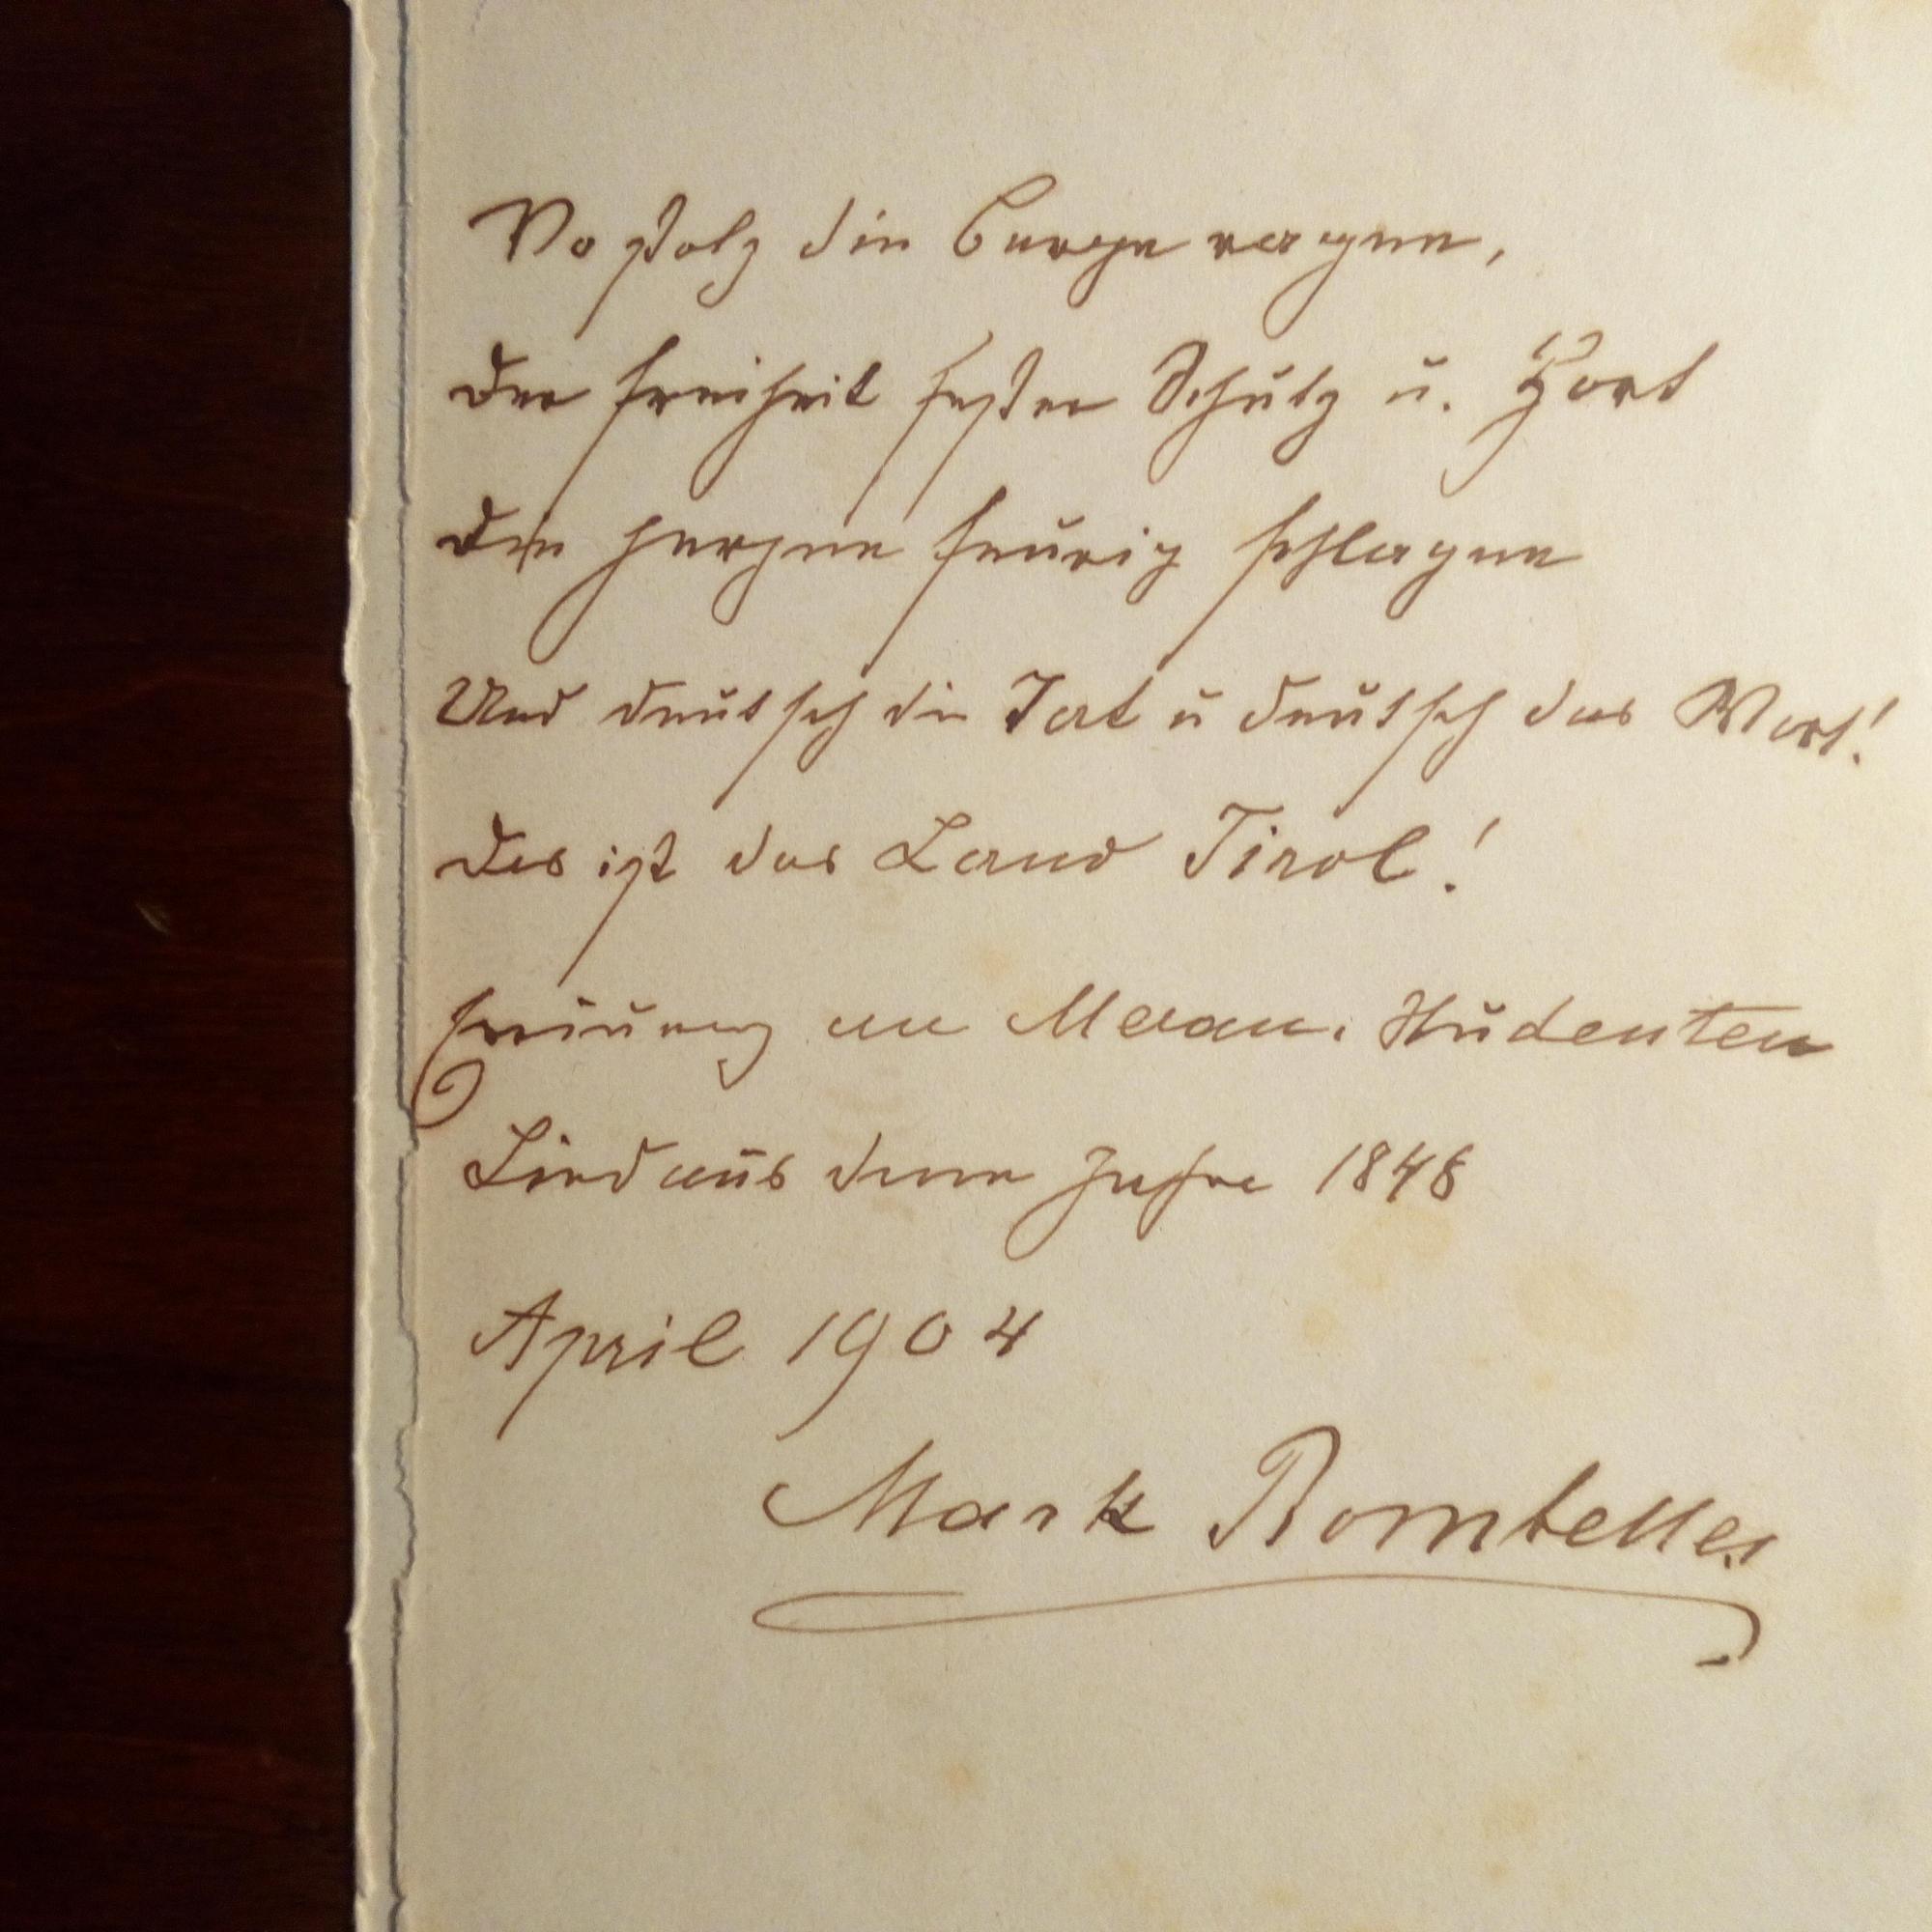 Wo stolz die Berge ragen,
Der Freiheit fester Schutz u. Hort
Die Herzen feurig schlagen
Und deutsch die Tat u deutsch das Wort!
Das ist das Land Tirol!
an Meran. Studenten
Lied aus dem Jahre 1848
April 1904
Mark Bombelles